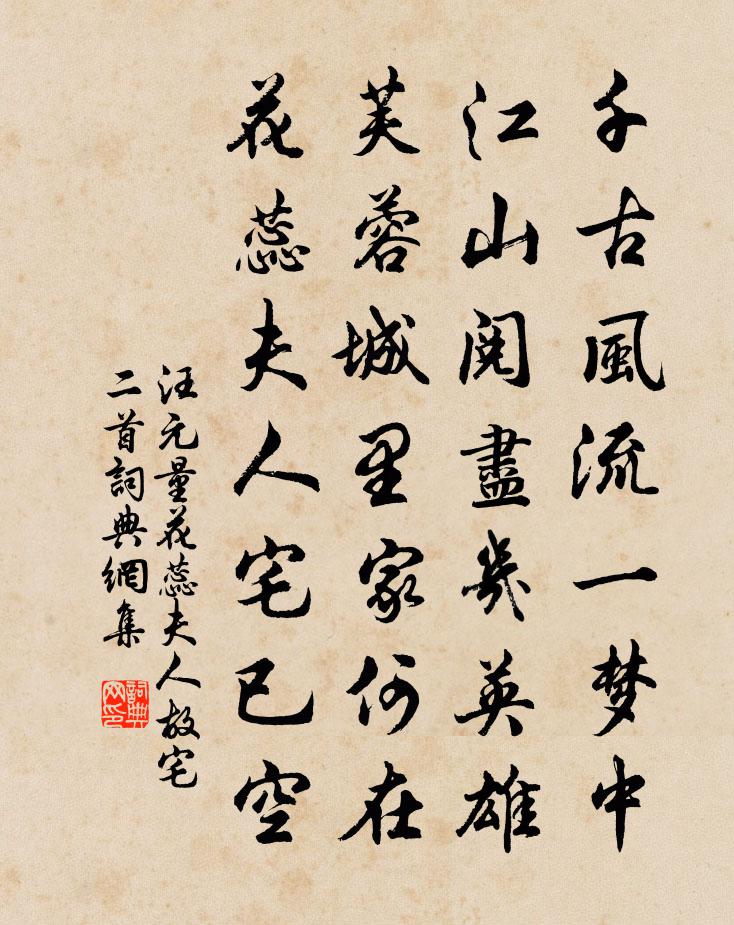 千古風流一梦中
江山閱盡幾英雄
芙蓉城里家何在
花蕊夫人宅已空
汪元量花蕊夫人故宅
二首詞典網集
詞典网印